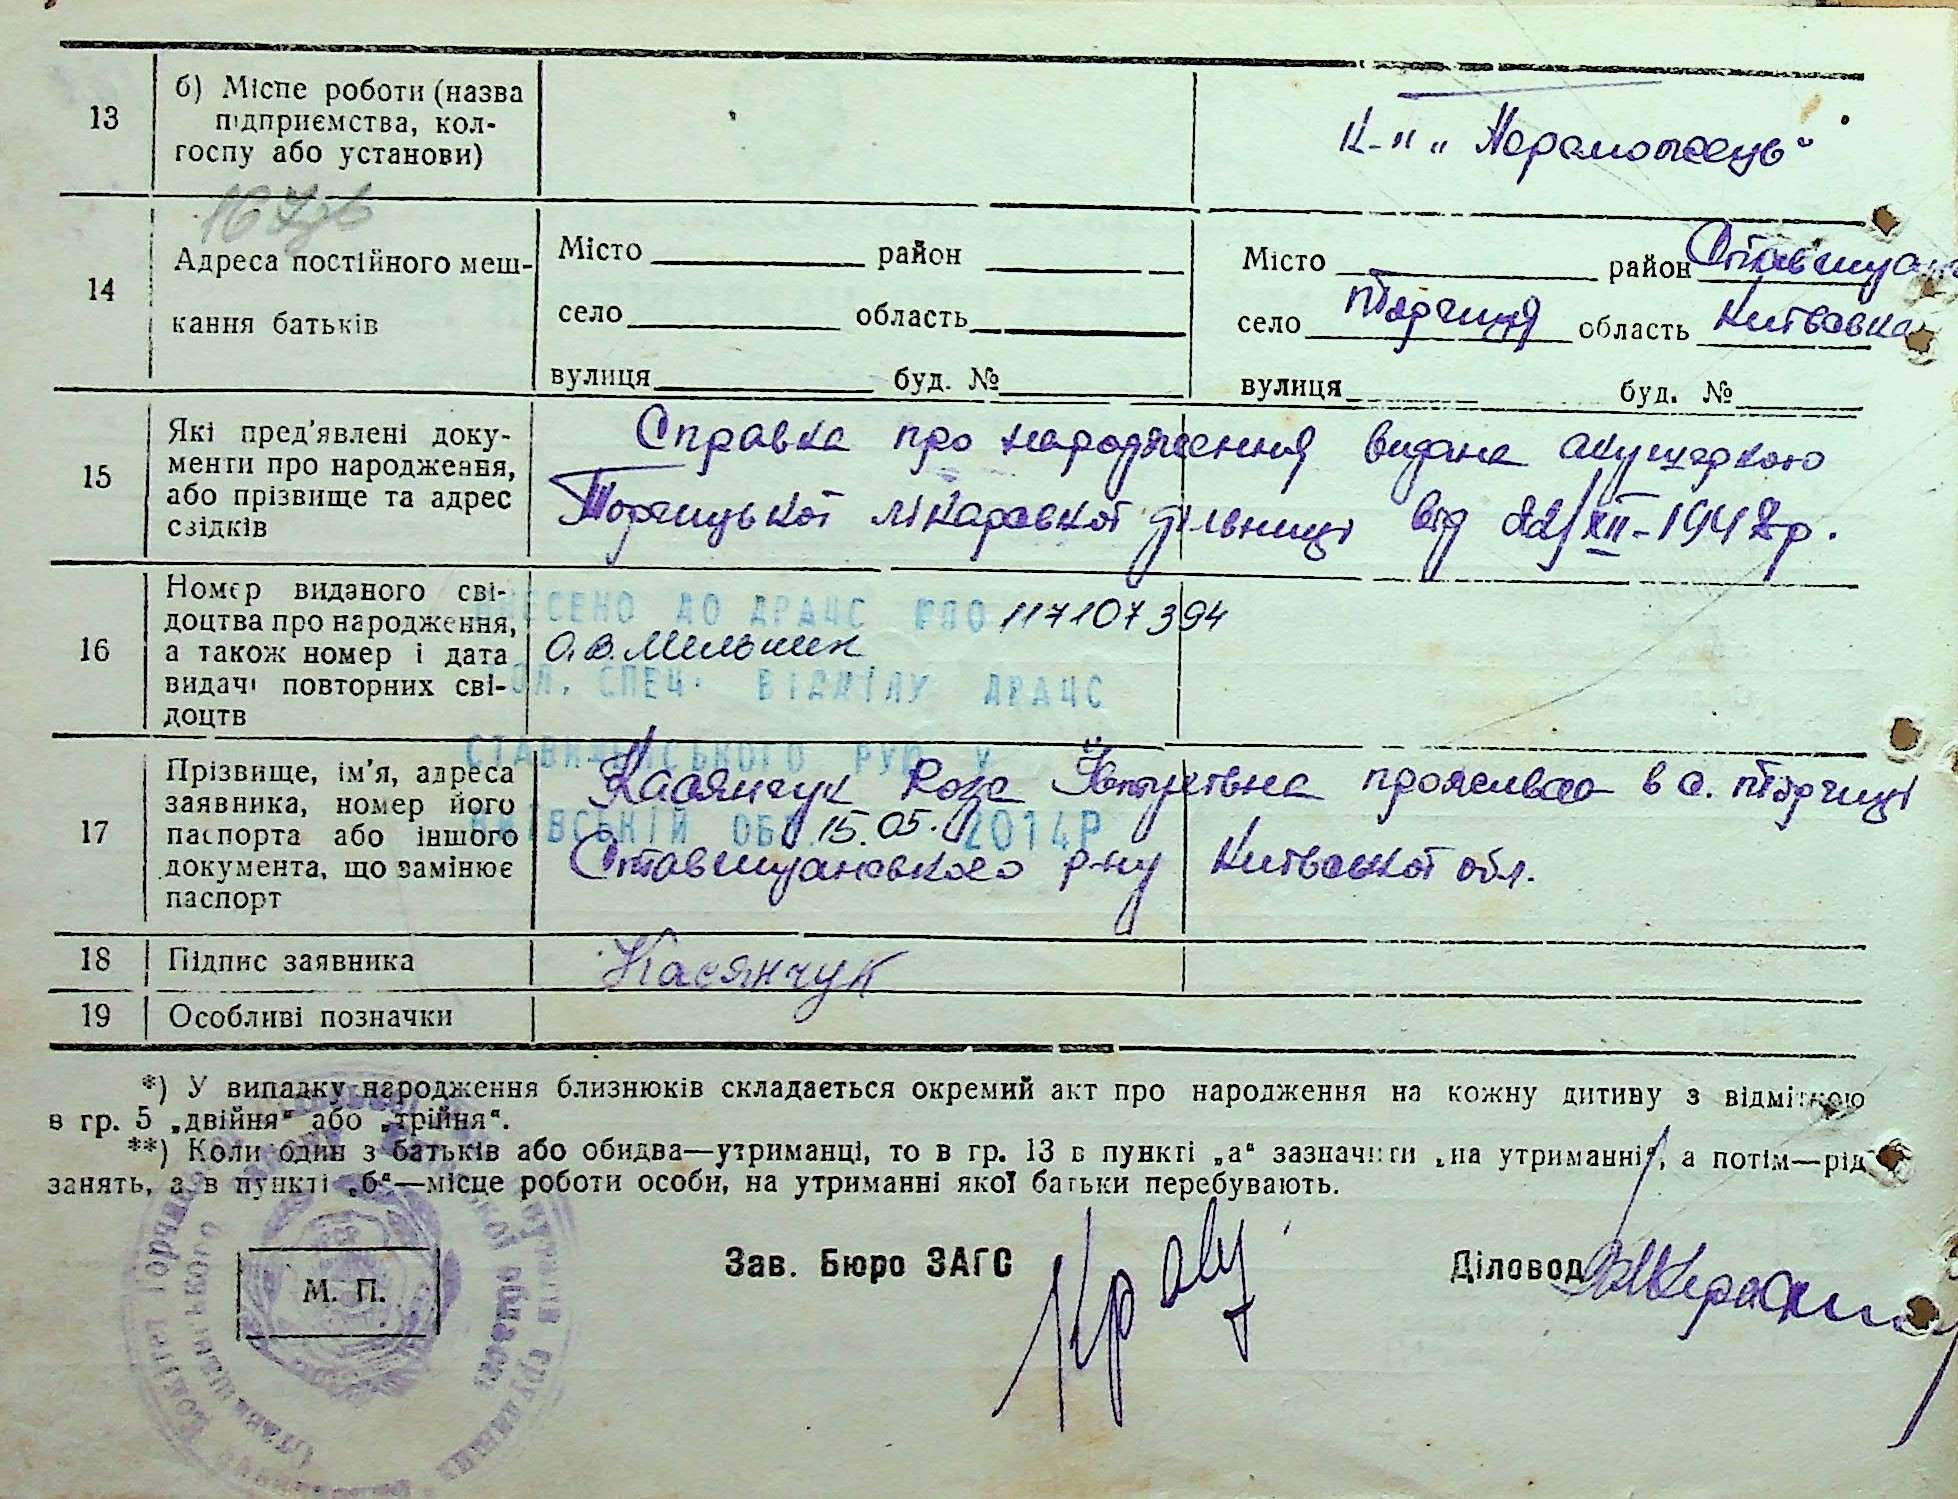 13
б) Місце роботи (назва
підприємства, кол-
госпу або установи)
к-п „Переможець“
14
Адреса постійного меш-
кання батьків
Місто район
село область
вулиця буд. №
Місто район
село Торчиця область Київська
вулиця буд. №
15
Які пред'явлені доку-
менти про народження,
або прізвище та адрес
свідків
Справка про народження видана акушеркою
Торчицької лікарської дільниці від 22/XII-1948р.
16
Номер виданого сві-
доцтва про народження,
а також номер і дата
видачі повторних сві-
доцтв
ВНЕСЕНО ДО ДРАЦС 117107394
О.В. Мельник
ГОЛ. СПЕЦ. ВІДДІЛУ ДРАЦС
СТАВИЩЕНСЬКОГО РУЮ У
КИЇВСЬКІЙ ОБЛ. 15.05. 2014Р
17
Прізвище, ім'я, адреса
заявника, номер його
паспорта або іншого
документа, що замінює
паспорт
Касянчук Роза проживає в с. Торчиці
р-ну Київської обл.
18
Підпис заявника
Касянчук
19
Особливі позначки
*) У випадку народження близнюків складається окремий акт про народження на кожну дитину з відміткою
в гр. 5 „двійня“ або „трійня“.
**) Коли один з батьків або обидва—утриманці, то в гр. 13 в пункті „а“ зазначити „на утриманні“, а потім—рід
занять, а в пункті „б“—місце роботи особи, на утриманні якої батьки перебувають.
М. П.
Зав. Бюро ЗАГС
Діловод